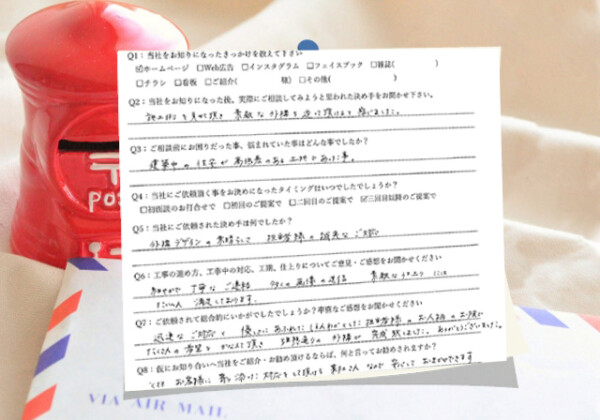 Q1：当社をお知りになったきっかけを教えて下さい
☑ホームページ □Web広告 □インスタグラム □フェイスブック □雑誌( )
□チラシ □看板 □ご紹介( 様) □その他( )
Q2：当社をお知りになった後、実際にご相談してみようと思われた決め手をお聞かせ下さい。
施工例を見せて頂き 素敵な外構を造って頂けると感じました。
Q3：ご相談前にお困りだった事、悩まれていた事はどんな事でしたか？
建築中の住宅が高低差のある土地である事。
Q4：当社にご依頼頂く事をお決めになったタイミングはいつでしたでしょうか？
□初面談のお打合せで □初回のご提案で □二回目のご提案で ☑三回目以降のご提案で
Q5：当社に依頼された決め手は何でしたか？
外構デザインの素晴らしさ 担当者様の誠実なご対応
Q6：工事の進め方、工事中の対応、工期、仕上りについてご意見・ご感想をお聞かせください
丁寧なご連絡 画像の送信 素敵な仕上り には
大いに 満足しております。
Q7：ご依頼されて総合的にいかがでしたでしょうか？率直なご感想をお聞かせください
迅速なご対応と 優しさにあふれた 担当者様のお人柄のお陰で
私たちの希望をかなえて頂き 理想通りの外構が完成致しました。ありがとうございました。
Q8：仮にお知り合いへ当社をご紹介・お勧め頂けるならば、何と言ってお勧めされますか？
とても お客様に寄り添った対応をして頂ける業者さんなので 安心しておまかせできます
POS
VIA AIR MAIL